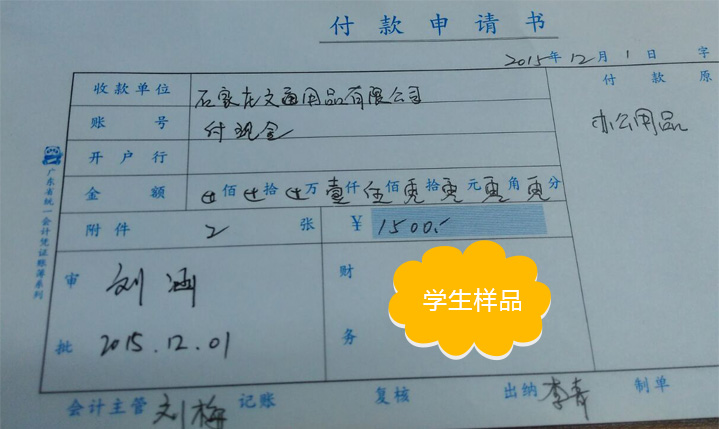 付款申请书
2015年12月1日 字
收款单位 石家庄文通用品有限公司 付款原
账号 付现金 办公用品
开户行
金额 佰 拾 万壹仟伍佰零拾零元零角零分
附件 2 张 ¥ 1500.-
审批 刘涵 2015.12.01 财务
学生样品
会计主管 刘梅 记账 复核 出纳 李青 制单
广东省统一会计凭证账簿系列